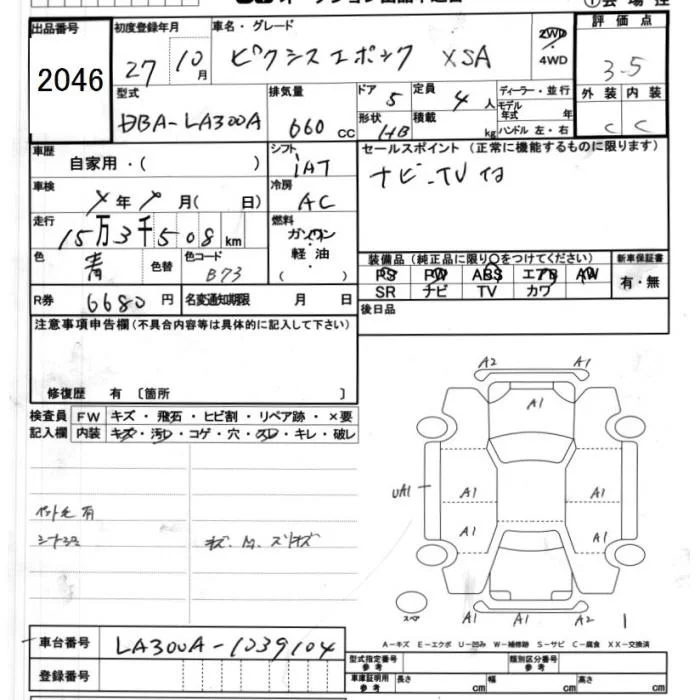 出品番号 2046
初度登録年月 27 10月
車名・グレード ピクシスエポック XSA
2WD・4WD
評価点 3.5
型式 DBA-LA300A
排気量 660 CC
ドア 5
定員 4人
ディーラー・並行
形状 HB
積載 kg
モデル年式 年
ハンドル 左・右
外装 内装
C C
車歴 自家用・( )
シフト IAT
セールスポイント (正常に機能するものに限ります)
ナビ-TV
車検 年 月( 日)
冷房 AC
走行 15万3千508km
燃料 ガソリン・軽油・( )
色 青 色替
色コード B73
装備品 (純正品に限り○をつけてください)
新車保証書
PS PW ABS エアB AW
有・無
SR ナビ TV カワ
R券 6680円
名変通知期限 月 日
後日品
注意事項申告欄 (不具合内容等は具体的に記入して下さい)
修復歴 有 〔箇所 〕
検査員記入欄
FW キズ・飛石・ヒビ割・リペア跡・×要
内装 キズ・汚レ・コゲ・穴・スレ・キレ・破レ
A2 A1
A1
UA1 A1 A1
A1 A1
スペア
A1 A1 A2
A-キズ E-エクボ U-凹み W-補修跡 S-サビ C-腐食 XX-交換済
車台番号 LA300A-1039104
登録番号
型式指定番号 参考
類別区分番号 参考
車庫証明用 参考 長さ cm 幅 cm 高さ cm